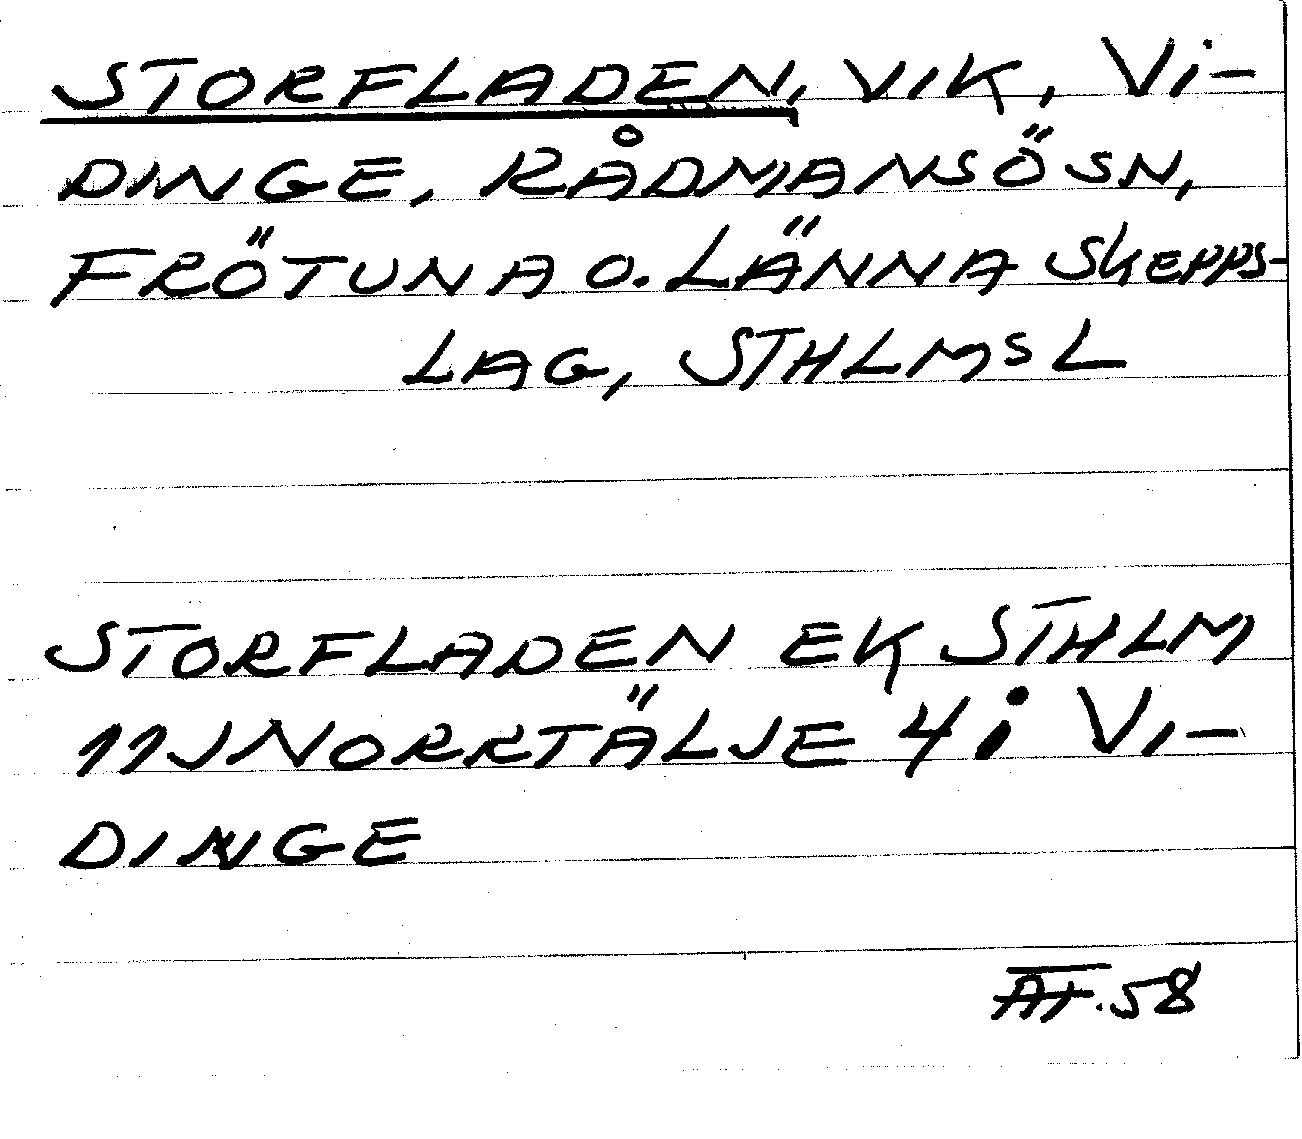 STORFLADEN, VIK, Vi-
DINGE, RÅDMANSÖ SN,
FRÖTUNA O. LÄNNA SKEPPS-
LAG, STHLMS L
STORFLADEN EK STHLM
11J NORRTÄLJE 4 i Vi-
DINGE
AF.58